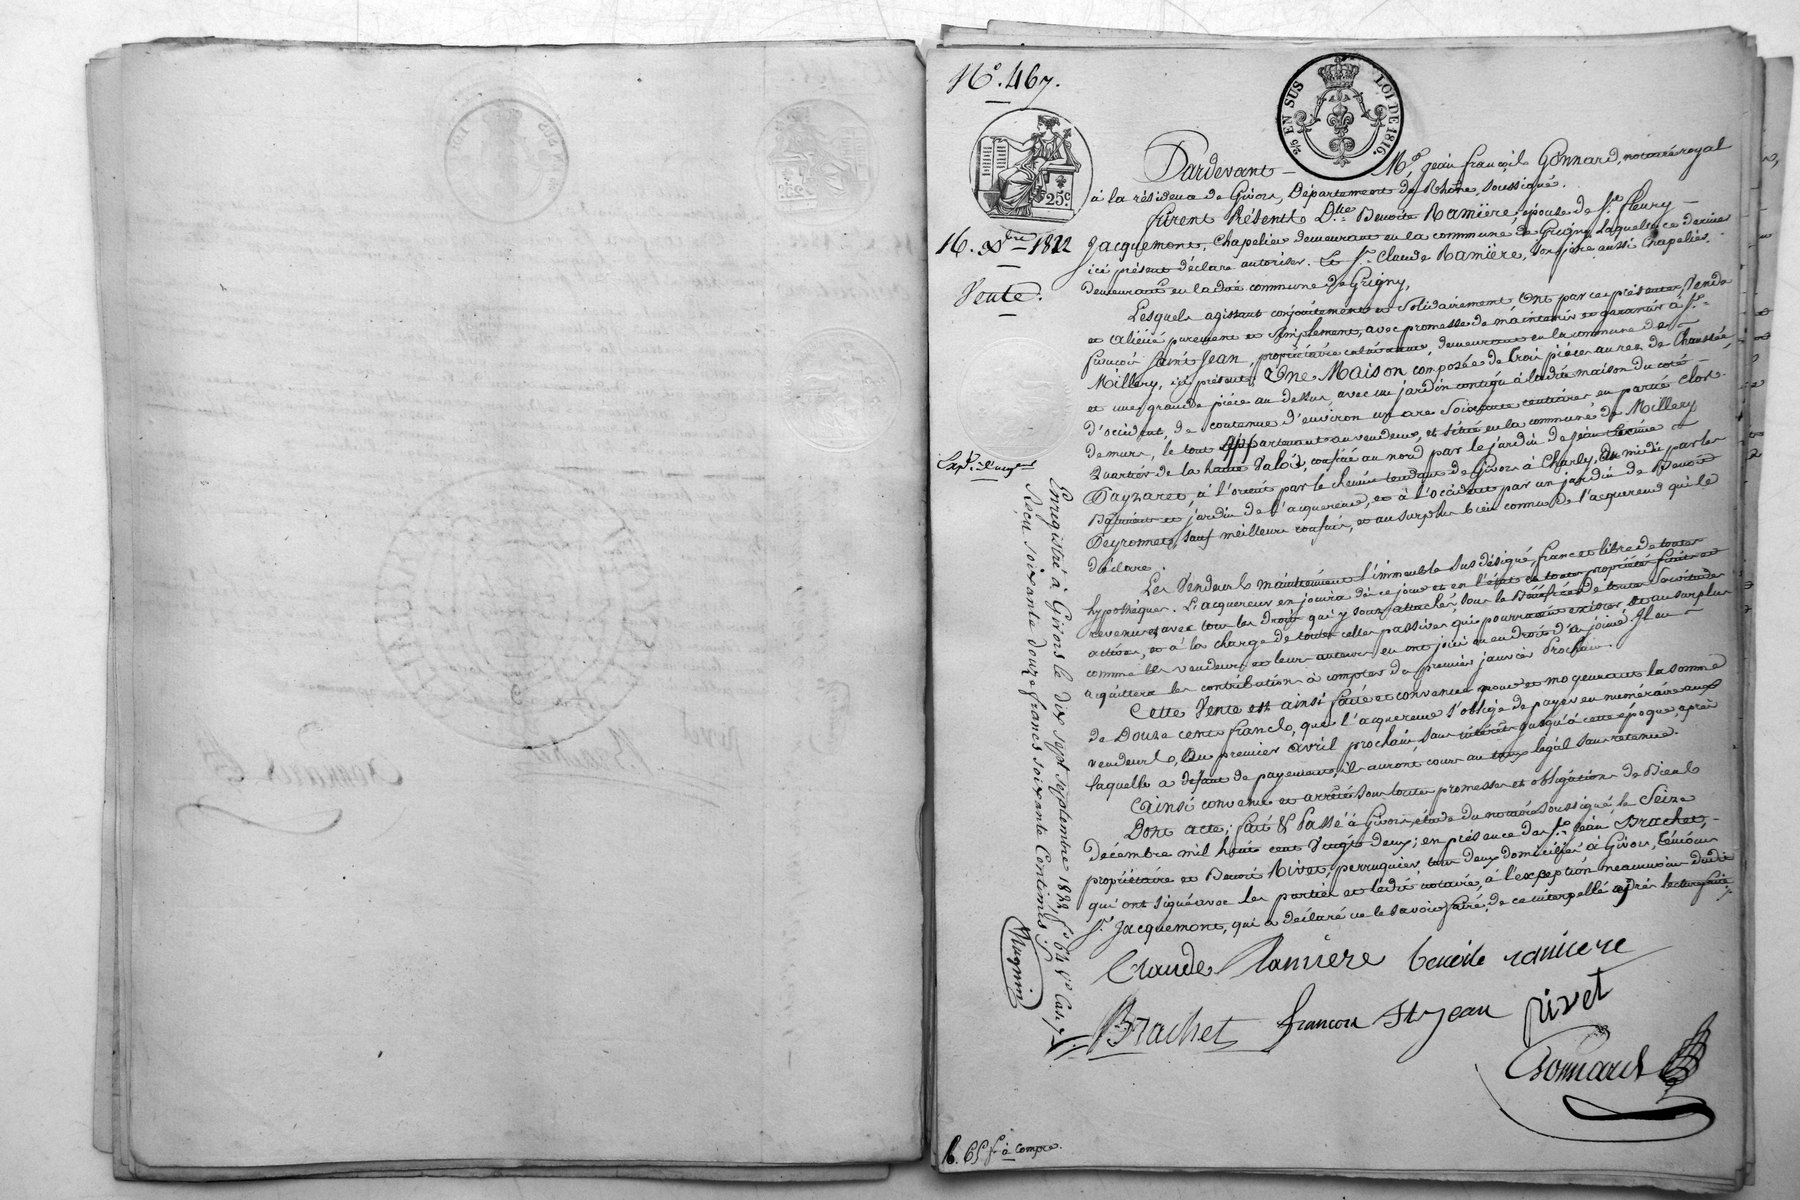 N.º 467.
25 EN SUS
LOI DE 1816.
25 c
16. Xbre 1822
Vente.
Pardevant M.e Jean françois Gonnard, notaire royal
à la résidence de Givors, Département du Rhône, soussigné.
furent Présents D.lle Benoite Ramière, épouse de S.r fleury
Jacquemont, Chapelier demeurant en la commune de Grigny, laquelle ce dernier
ici présent déclare autoriser. Le S.r Claude Ramière, son frère aussi Chapelier,
demeurant en ladite commune de Grigny,
Lesquels agissant conjointement et Solidairement Ont par ces présentes, Vendu
et aliéné purement et simplement, avec promesse de maintenir et garantir à S.r
françois Saint Jean, propriétaire cultivateur, demeurant en la commune de
Millery, ici présent; Une Maison composée de trois pièces au rez de Chaussée
et une grande pièce au dessus, avec un jardin contigu à ladite maison du coté
d'occident, de contenue d'environ un are soixante centiares en partie clos
de murs, le tout appartenant au vendeurs, et situé en la commune de Millery
Quartier de la haute Valois, confiné au nord par le jardin de Jean
Payzaret, à l'orient par le chemin tendant de Givors à Charly, du midi par les
Bâtiments et jardin de l'acquereur, et à l'occident par un jardin de Benoit
Peyronnet, sauf meilleurs confins, et au surplus bien connu de l'acquereur qui le
déclare.
Les Vendeurs maintiennent l'immeuble sus désigné, franc et libre de toutes
hypothèques. L'acquereur en jouira dès ce jour et en l'état en toute propriété fruits et
revenus, avec tous les droits qui y sont attachés, sous le Bénéfice de toutes servitudes
actives, et à la charge de toutes celles passives qui pourraient exister et au surplus
comme les vendeurs et leurs auteurs en ont joui ou eu droit d'en jouir. Il en
acquittera les contributions à compter du premier janvier prochain.
Cette Vente est ainsi faite et convenue pour et moyennant la somme
de Douze cents francs, que l'acquereur s'oblige de payer en numéraire aux
vendeurs, au premier avril prochain, sans intérêts jusqu'à cette époque, après
laquelle a défaut de payement, ils auront cours au taux légal sans retenue.
Ainsi convenu et arrêté sous toutes promesses et obligations de Biens
Dont acte; fait & Passé à Givors, étude du notaire soussigné, le Seize
décembre mil huit cent Vingt deux; en présence des S.rs Jean Brachet,
propriétaire et Benoit Rivet, perruquier, tous deux domiciliés à Givors, témoins
qui ont signé avec les parties et ledit notaire, à l'exception néanmoins dudit
S.r Jacquemont, qui a déclaré ne le savoir faire, de ce interpellé après lecture faite
Claude Ramière benoite ramiere
Brachet francois St jean rivet
Gonnard
Enregistré à Givors le dix sept septembre 1822 f.o 64 V.o Case 7.
Reçu soixante douze francs soixante Centimes
Mugnin